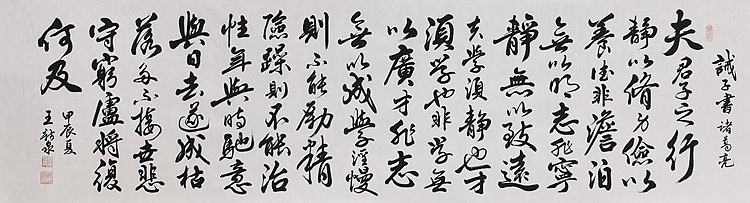 誡子書 諸葛亮
夫君子之行
靜以脩身儉以
養德非澹泊
無以明志非寧
靜無以致遠
夫學須靜也才
須學也非學無
以廣才非志
無以成學淫慢
則不能勵精
險躁則不能治
性年與時馳意
與日去遂成枯
落多不接世悲
守窮廬將復
何及
甲辰夏
王